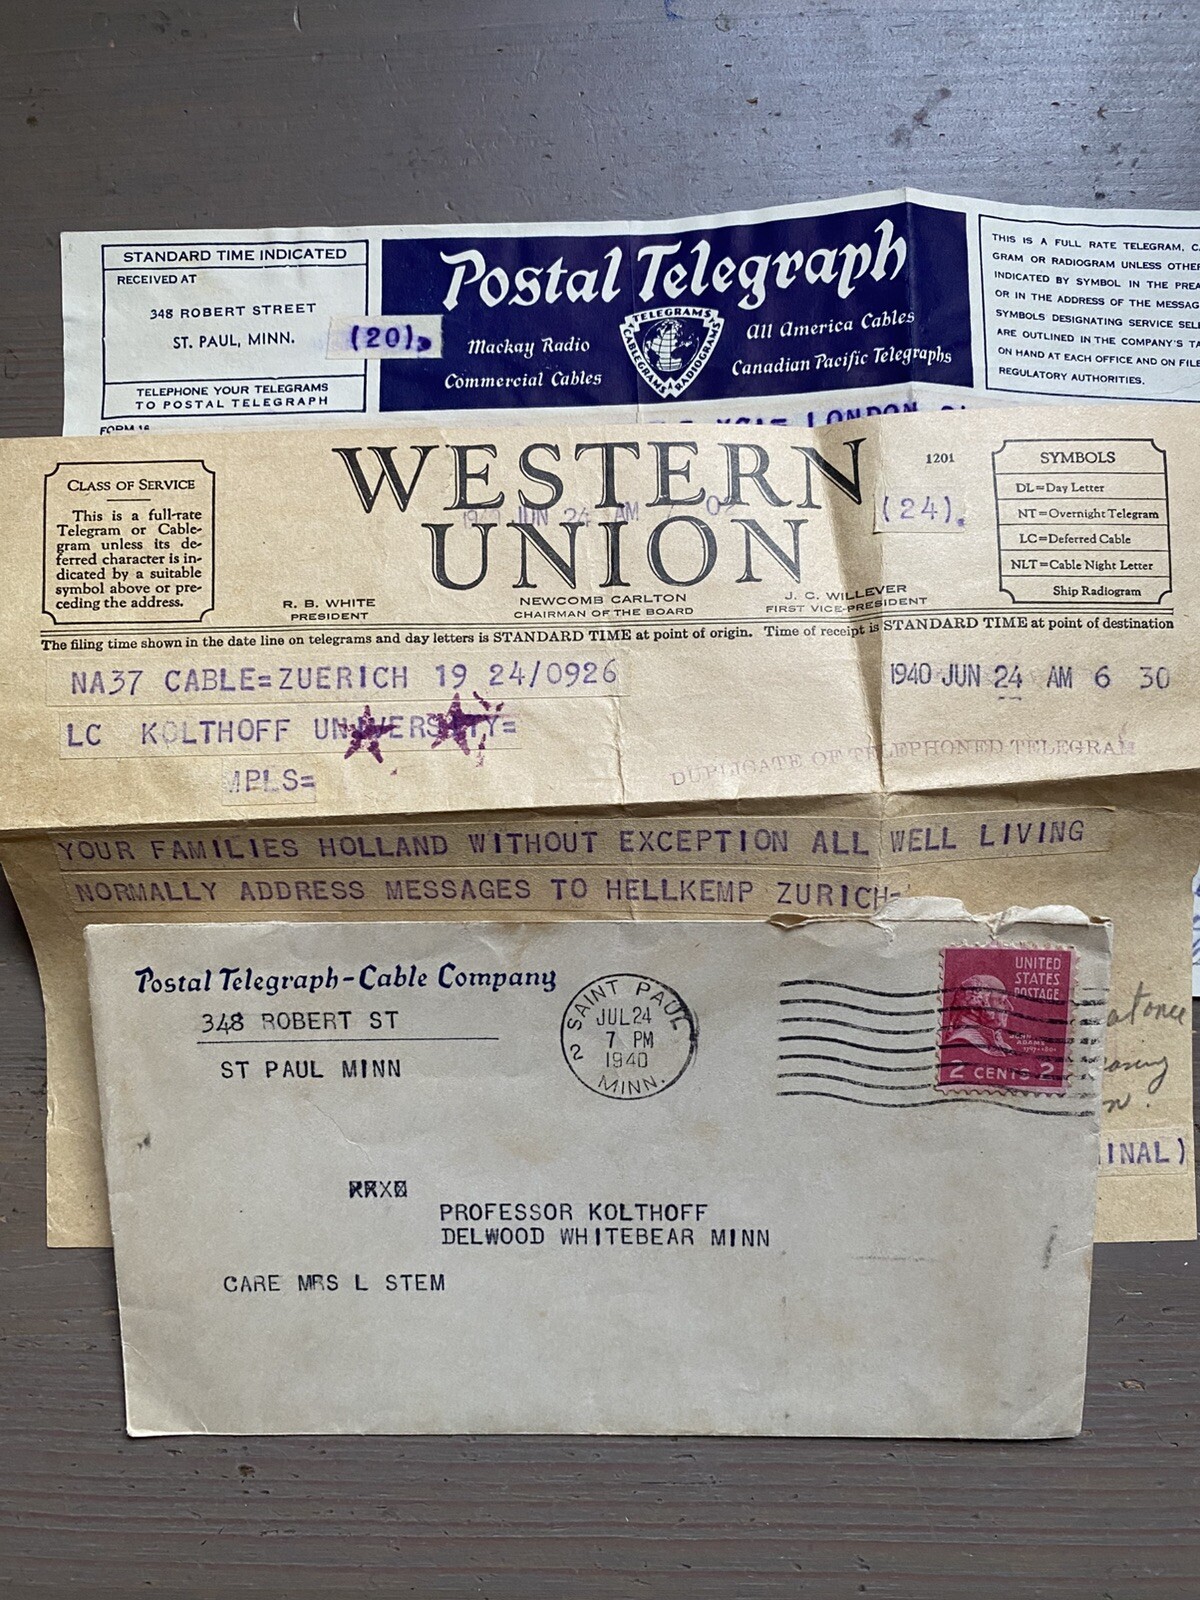 STANDARD TIME INDICATED
RECEIVED AT
348 ROBERT STREET
ST. PAUL, MINN.
TELEPHONE YOUR TELEGRAMS
TO POSTAL TELEGRAPH
FORM 16
(20)
Postal Telegraph
Mackay Radio
Commercial Cables
TELEGRAMS
CABLEGRAMS
RADIOGRAMS
All America Cables
Canadian Pacific Telegraphs
THIS IS A FULL RATE TELEGRAM,
GRAM OR RADIOGRAM UNLESS
INDICATED BY SYMBOL IN THE
OR IN THE ADDRESS OF THE
SYMBOLS DESIGNATING SERVICE
ARE OUTLINED IN THE COMPANY'S
ON HAND AT EACH OFFICE AND ON
REGULATORY AUTHORITIES.
LONDON
CLASS OF SERVICE
This is a full-rate
Telegram or Cable-
gram unless its de-
ferred character is in-
dicated by a suitable
symbol above or pre-
ceding the address.
WESTERN
UNION
1940 JUN 24 AM 7 02
1201
(24).
SYMBOLS
DL=Day Letter
NT=Overnight Telegram
LC=Deferred Cable
NLT=Cable Night Letter
Ship Radiogram
R. B. WHITE
PRESIDENT
NEWCOMB CARLTON
CHAIRMAN OF THE BOARD
J. C. WILLEVER
FIRST VICE-PRESIDENT
The filing time shown in the date line on telegrams and day letters is STANDARD TIME at point of origin. Time of receipt is STANDARD TIME at point of destination
NA37 CABLE=ZUERICH 19 24/0926
1940 JUN 24 AM 6 30
LC KOLTHOFF UNIVERSITY=
MPLS=
DUPLICATE OF TELEPHONED TELEGRAM
YOUR FAMILIES HOLLAND WITHOUT EXCEPTION ALL WELL LIVING
NORMALLY ADDRESS MESSAGES TO HELLKEMP ZURICH=
at once
INAL)
Postal Telegraph-Cable Company
348 ROBERT ST
ST PAUL MINN
SAINT PAUL
JUL 24
7 PM
1940
2
MINN.
UNITED
STATES
POSTAGE
JOHN
ADAMS
2 CENTS 2
PROFESSOR KOLTHOFF
DELWOOD WHITEBEAR MINN
CARE MRS L STEM